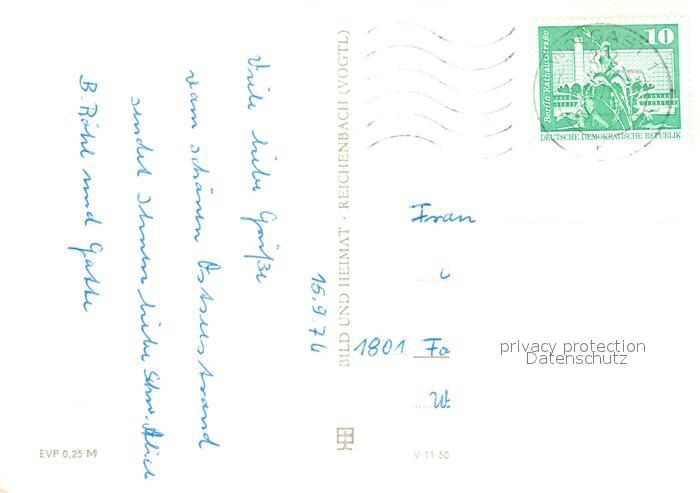 15.9.76
Viele liebe Grüße
vom schönen Ostseestrand
sendet Ihnen liebe Schw.
B. Röhl und Gatte
BILD UND HEIMAT · REICHENBACH (VOGTL)
EVP 0,25 M
V 11 50
10
Berlin-Rathausstraße
DEUTSCHE DEMOKRATISCHE REPUBLIK
Frau
1801 Fa
privacy protection
Datenschutz